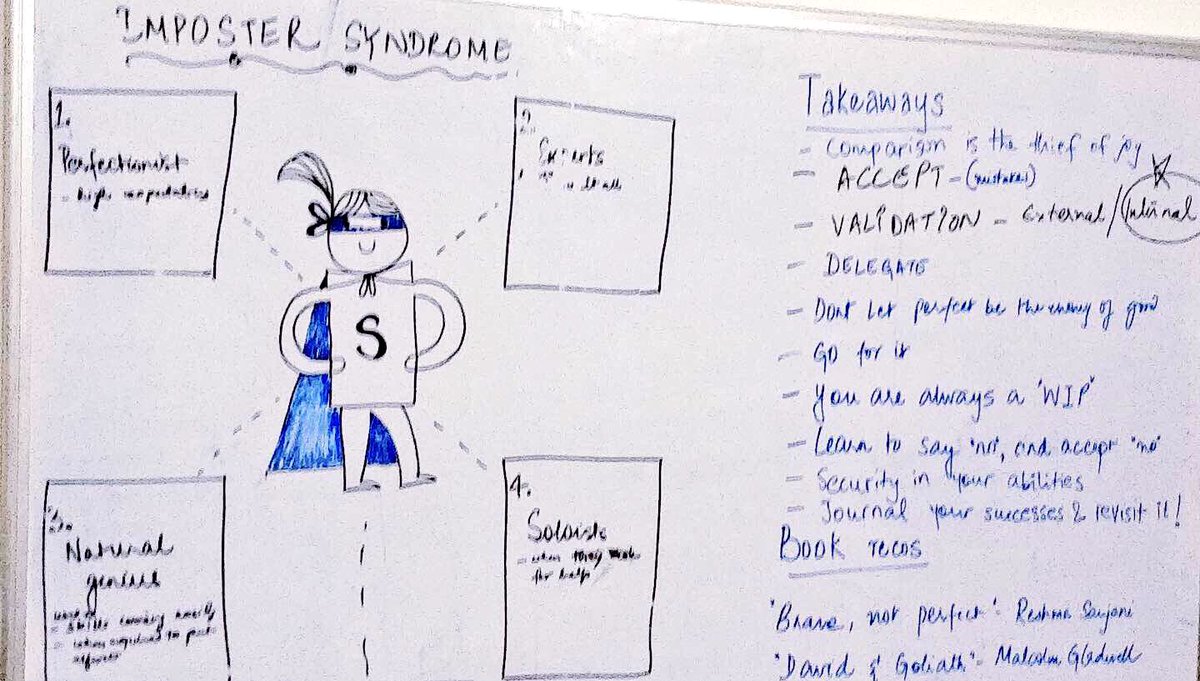 IMPOSTER SYNDROME
1.
Perfectionist
- high expectations
2.
Experts
it all
3.
Natural
genius
- skills coming easily
- when required to put
efforts
4.
Soloists
- when they
for help
S
Takeaways
- Comparison is the thief of joy
- ACCEPT - (mistakes)
- VALIDATION - External / Internal
- DELEGATE
- Dont let perfect be the enemy of good
- GO for it
- You are always a "WIP"
- Learn to say "no", and accept "no"
- Security in your abilities
- Journal your successes & revisit it!
Book recos
"Brave, not perfect" - Reshma Saujani
"David & Goliath" - Malcolm Gladwell